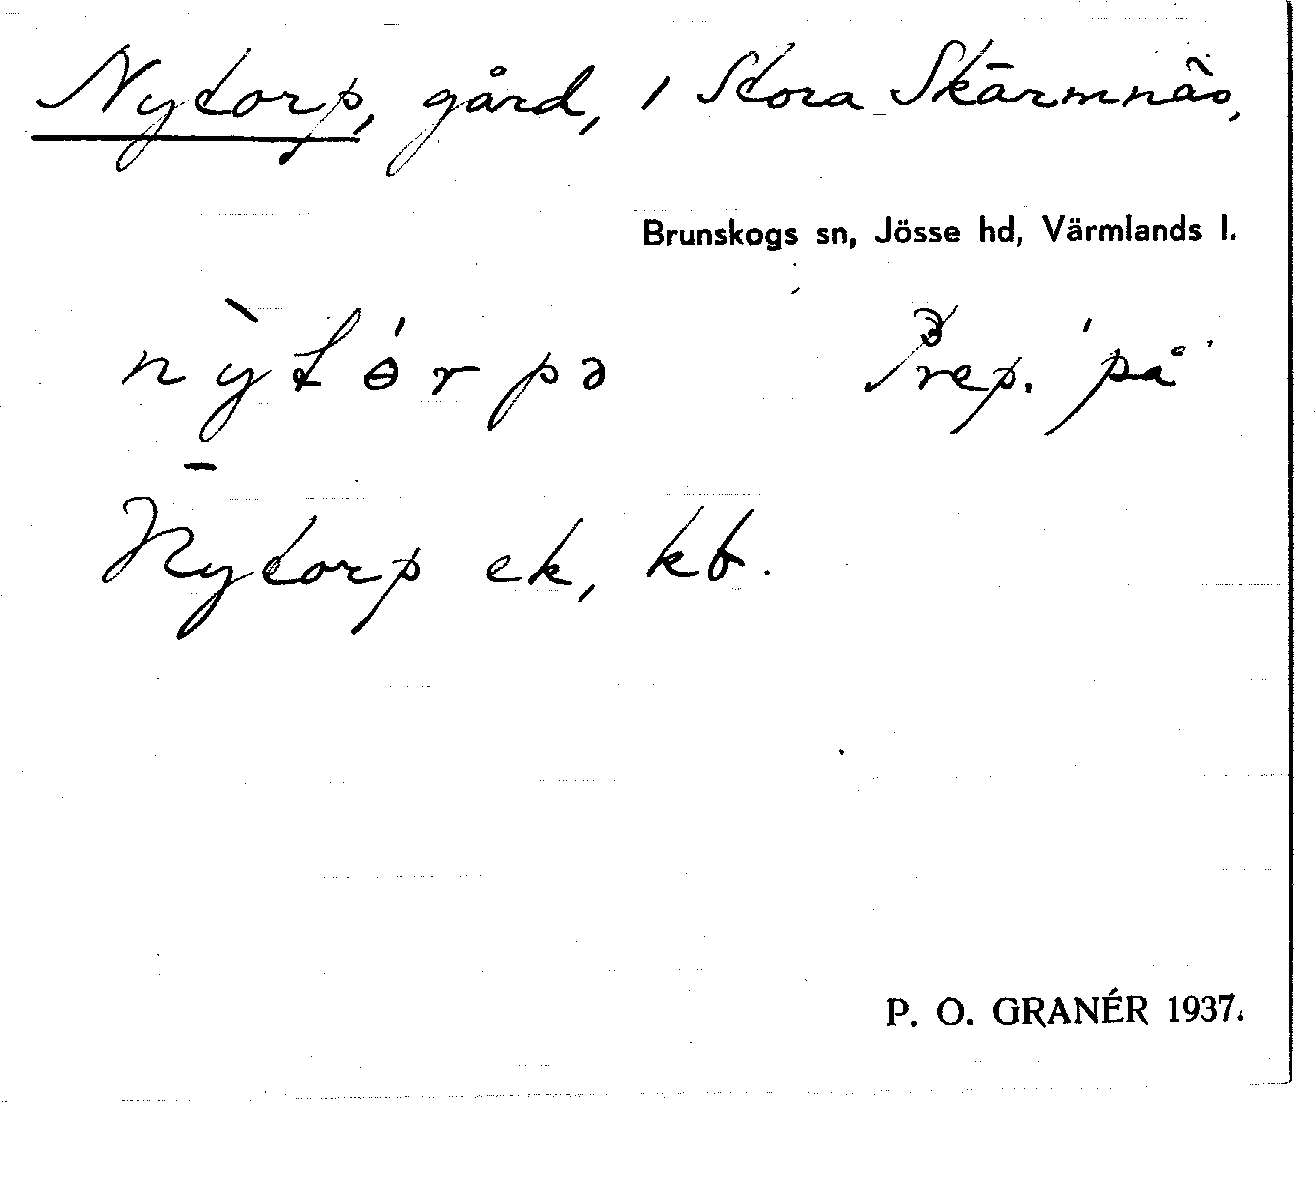 Nytorp, gård, i Stora Skärmnäs,
Brunskogs sn, Jösse hd, Värmlands l.
nỳtɵ́rpə Prep. 'på'
Nytorp ek, kb.
P. O. GRANÉR 1937.